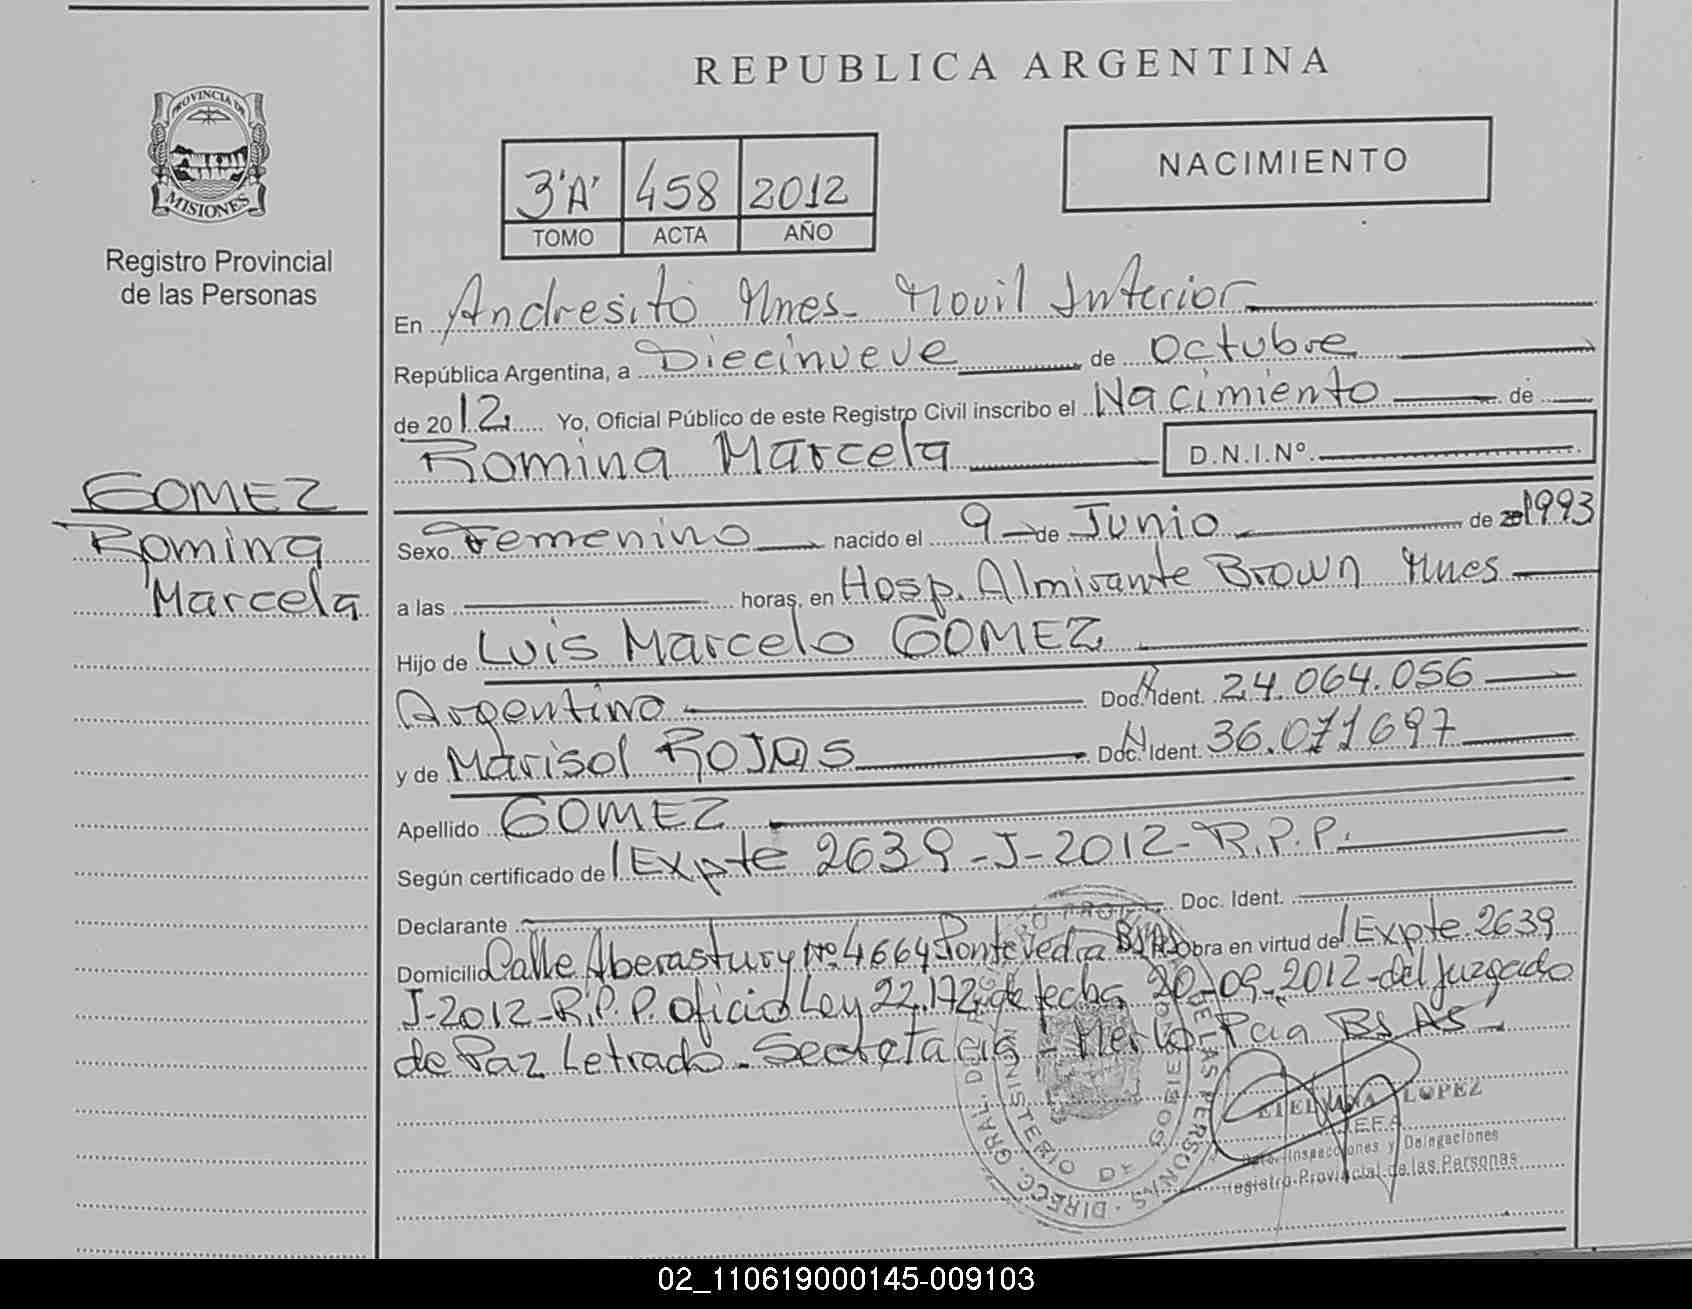 REPUBLICA ARGENTINA
PROVINCIA DE
MISIONES
Registro Provincial
de las Personas
3"A" 458 2012
TOMO ACTA AÑO
NACIMIENTO
En Andresito Mnes- Movil Interior
República Argentina, a Diecinueve de Octubre
de 2012. Yo, Oficial Público de este Registro Civil inscribo el Nacimiento de
Romina Marcela D.N.I.Nº.
GOMEZ
Romina
Marcela
Sexo Femenino nacido el 9 de Junio de 1993
a las horas, en Hosp. Almirante Brown Mnes
Hijo de Luis Marcelo GOMEZ
Argentino Doc. N Ident. 24.064.056
y de Marisol ROJAS Doc. N Ident. 36.071697
Apellido GOMEZ
Según certificado de Expte 2639-J-2012-R.P.P.
Declarante Doc. Ident.
Domicilio Calle Aberastury Nº 4664 Pontevedra BsAs obra en virtud de Expte 2639
J-2012-R.P.P. Oficio Ley 22.172 de fecha 20-09-2012-del Juzgado
de Paz Letrado-Secretaria-Merlo-Pcia BS AS
DIRECC. GRAL. DEL DE LAS PERSONAS
MINISTERIO DE GOBIERNO
LOPEZ
JEFA
Dpto. Inspecciones y Delegaciones
Registro Provincial de las Personas
02_110619000145-009103